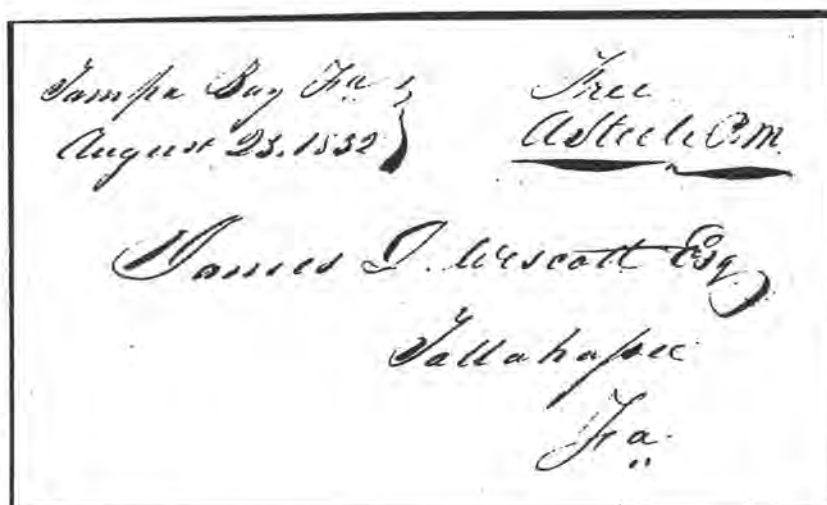 Tampa Bay Fa
August 23. 1832
Free
A Steele P.M.
James D. Wescott Esq
Tallahassee
Fa.